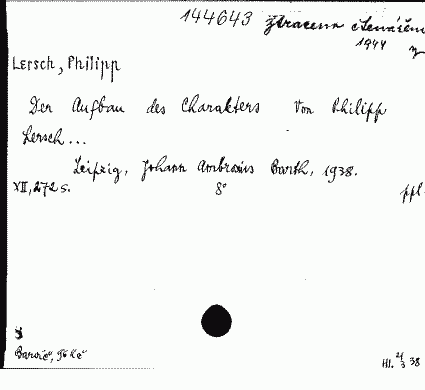 144643 ztracena čtenářem
1944
Lersch, Philipp
Der Aufbau des Charakters Von Philipp
Lersch...
Leipzig, Johann Ambrosius Barth, 1938.
XII, 272 s. 8° ppl.
Barvič, 96 Kč
Hl. 21/3 38